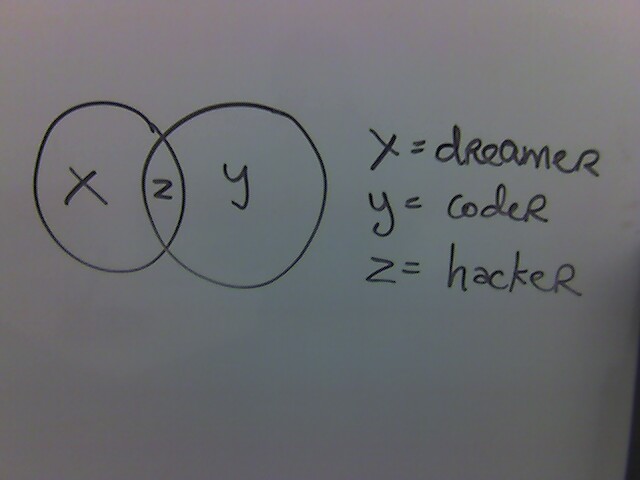 X z y
x = dreamer
y = coder
z = hacker